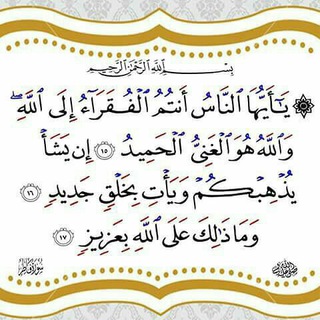 بِسْمِ اللَّهِ الرَّحْمَٰنِ الرَّحِيمِ
۞ يَٰٓأَيُّهَا ٱلنَّاسُ أَنتُمُ ٱلْفُقَرَآءُ إِلَى ٱللَّهِۖ
وَٱللَّهُ هُوَ ٱلْغَنِىُّ ٱلْحَمِيدُ ١٥ إِن يَشَأْ
يُذْهِبْكُمْ وَيَأْتِ بِخَلْقٍ جَدِيدٍ ١٦
وَمَا ذَٰلِكَ عَلَى ٱللَّهِ بِعَزِيزٍ ١٧
سورة فاطر